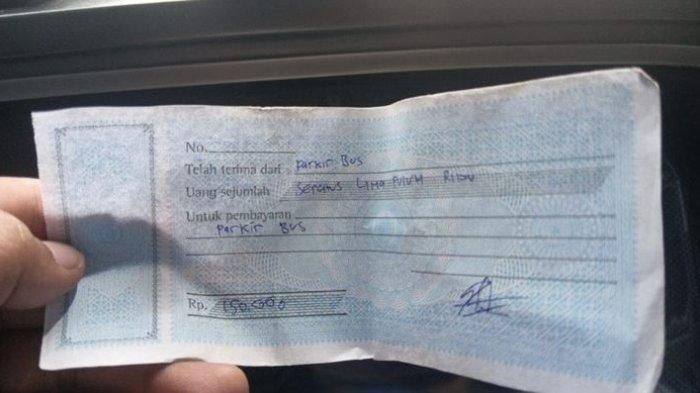 No.
Telah terima dari : Parkir Bus
Uang sejumlah : Seratus Lima Puluh Ribu
Untuk pembayaran :
Parkir Bus
Rp. 150.000